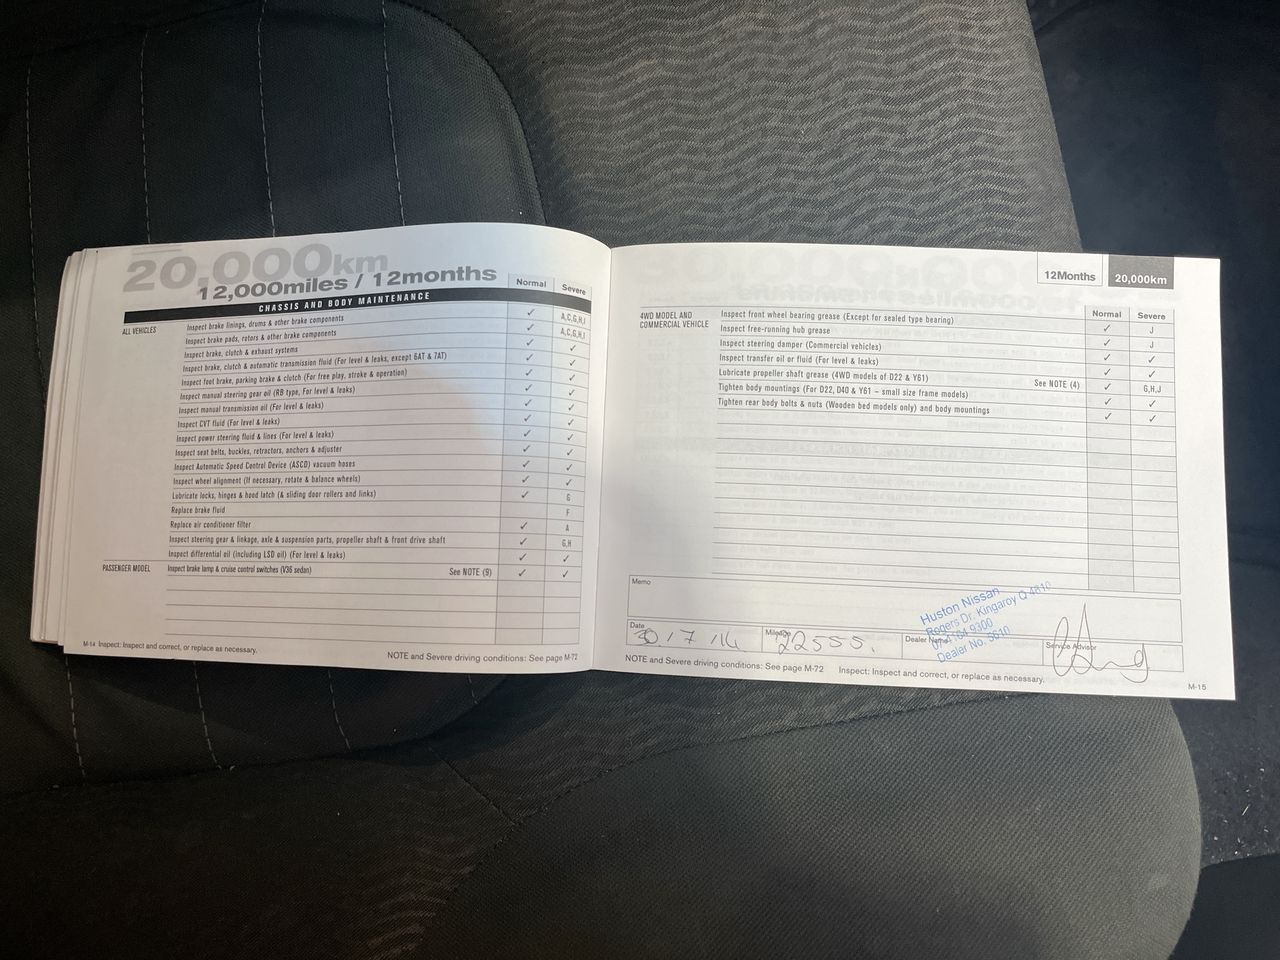 20,000km
12,000miles / 12months
Normal Severe
CHASSIS AND BODY MAINTENANCE
ALL VEHICLES
Inspect brake linings, drums & other brake components ✓ A,C,G,H,I
Inspect brake pads, rotors & other brake components ✓ A,C,G,H,I
Inspect brake, clutch & exhaust systems ✓ ✓
Inspect brake, clutch & automatic transmission fluid (For level & leaks, except 6AT & 7AT) ✓ ✓
Inspect foot brake, parking brake & clutch (For free play, stroke & operation) ✓ ✓
Inspect manual steering gear oil (RB type, For level & leaks) ✓ ✓
Inspect manual transmission oil (For level & leaks) ✓ ✓
Inspect CVT fluid (For level & leaks) ✓ ✓
Inspect power steering fluid & lines (For level & leaks) ✓ ✓
Inspect seat belts, buckles, retractors, anchors & adjuster ✓ ✓
Inspect Automatic Speed Control Device (ASCD) vacuum hoses ✓ ✓
Inspect wheel alignment (If necessary, rotate & balance wheels) ✓ ✓
Lubricate locks, hinges & hood latch (& sliding door rollers and links) ✓ G
Replace brake fluid F
Replace air conditioner filter ✓ A
Inspect steering gear & linkage, axle & suspension parts, propeller shaft & front drive shaft ✓ G,H
Inspect differential oil (including LSD oil) (For level & leaks) ✓ ✓
PASSENGER MODEL Inspect brake lamp & cruise control switches (V36 sedan) See NOTE (9) ✓ ✓
M-14 Inspect: Inspect and correct, or replace as necessary.
NOTE and Severe driving conditions: See page M-72
12Months 20,000km
Normal Severe
4WD MODEL AND
COMMERCIAL VEHICLE
Inspect front wheel bearing grease (Except for sealed type bearing) ✓ J
Inspect free-running hub grease ✓ J
Inspect steering damper (Commercial vehicles) ✓ ✓
Inspect transfer oil or fluid (For level & leaks) ✓ ✓
Lubricate propeller shaft grease (4WD models of D22 & Y61) See NOTE (4) ✓ G,H,J
Tighten body mountings (For D22, D40 & Y61 – small size frame models) ✓ ✓
Tighten rear body bolts & nuts (Wooden bed models only) and body mountings ✓ ✓
Memo
Huston Nissan
Rogers Dr. Kingaroy Q 4610
9300
Dealer No. 5610
Date 30/7/14
Mileage 22555.
Dealer Name
Service Advisor
NOTE and Severe driving conditions: See page M-72 Inspect: Inspect and correct, or replace as necessary.
M-15